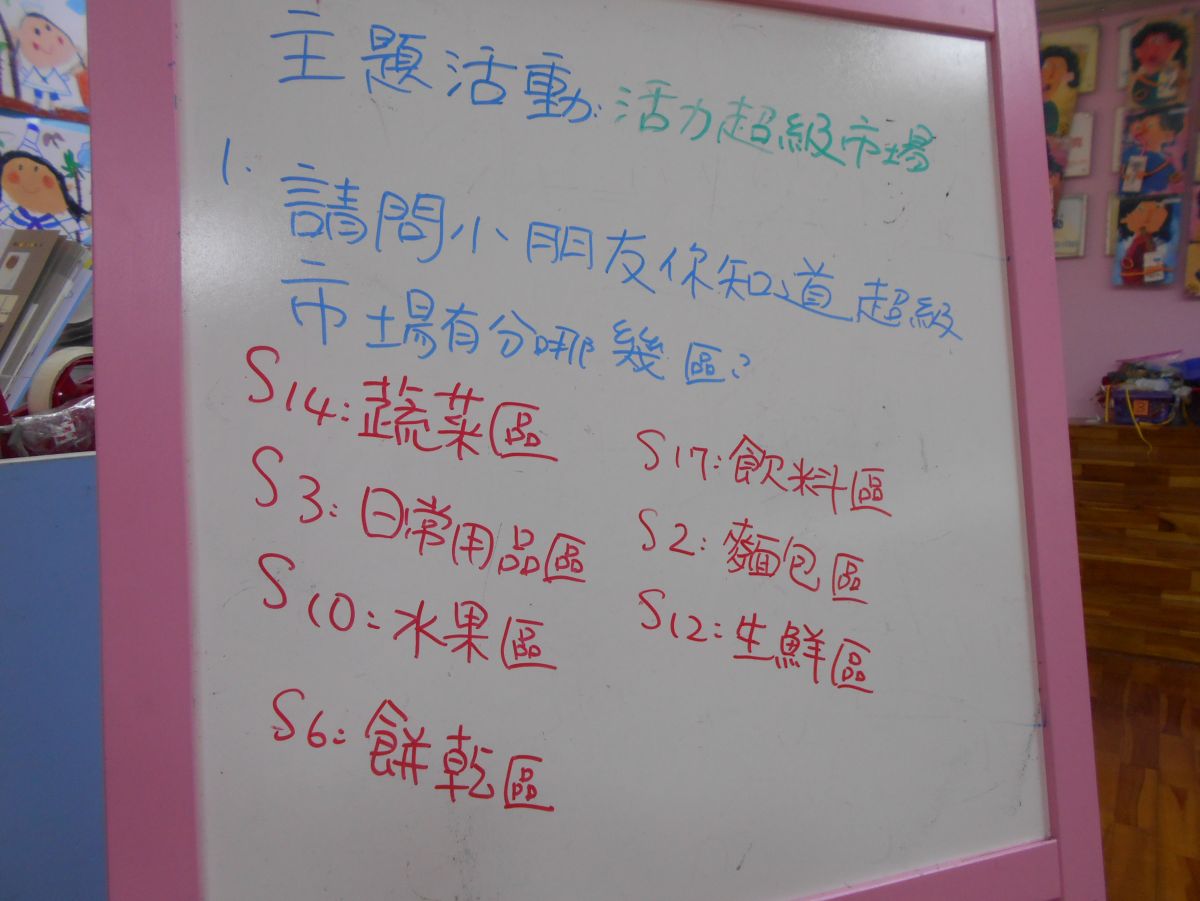 主題活動:活力超級市場
1.請問小朋友你知道超級
市場有分哪幾區?
S14:蔬菜區
S3:日常用品區
S10:水果區
S6:餅乾區
S17:飲料區
S2:麵包區
S12:生鮮區